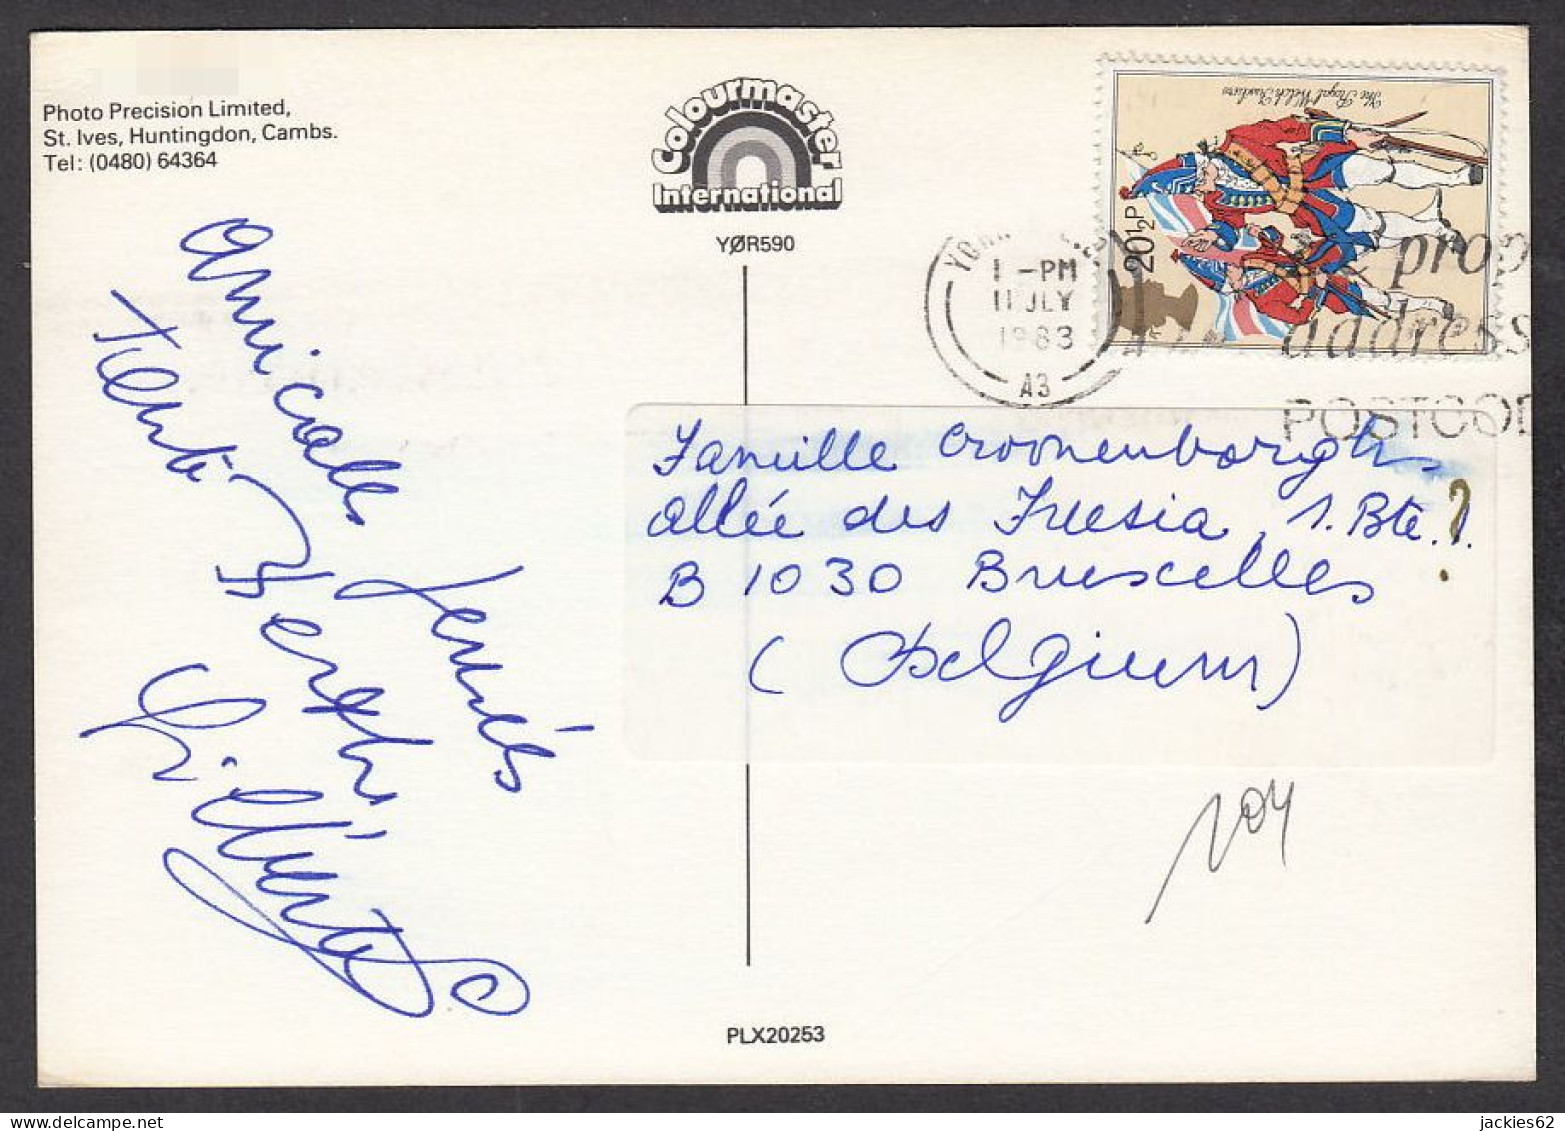 Photo Precision Limited,
St. Ives, Huntingdon, Cambs.
Tel: (0480) 64364
Colourmaster
International
YØR590
The Royal Welch Fusiliers
20½P
YORK
1-PM
11 JLY
1983
A3
prop
address
POSTCOD
Amicales
Pensées
Gilberte
Famille Croonenborghs
allée des Freesia, 1. Bte. 1.
?
B 1030 Bruxelles
(Belgium)
104
PLX20253
jackies62